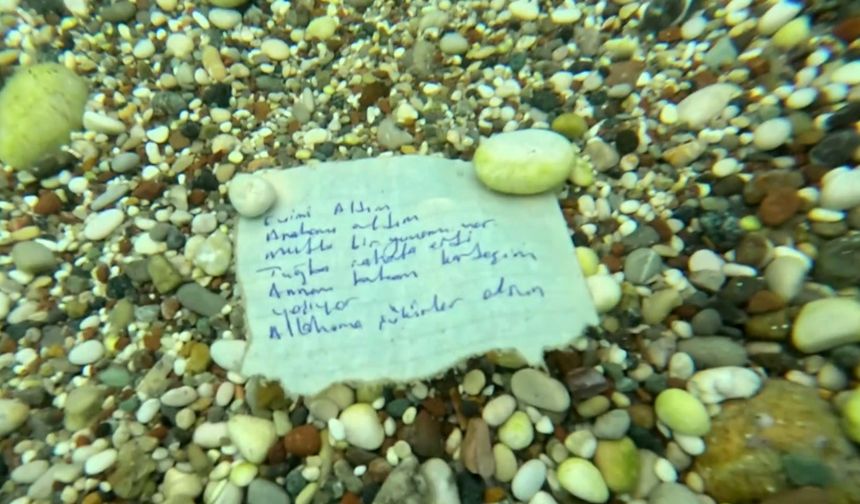 Evimi Aldım
Arabamı aldım
Mutlu bir yuvam var
Tuğba rahata erdi
Annem babam kardeşim
yaşıyor
Allahıma şükürler olsun